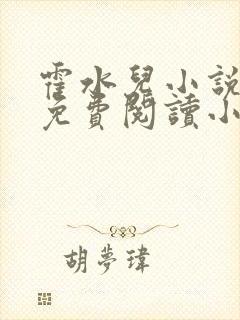 霍水兒小說
免費閱讀小
胡夢瑋